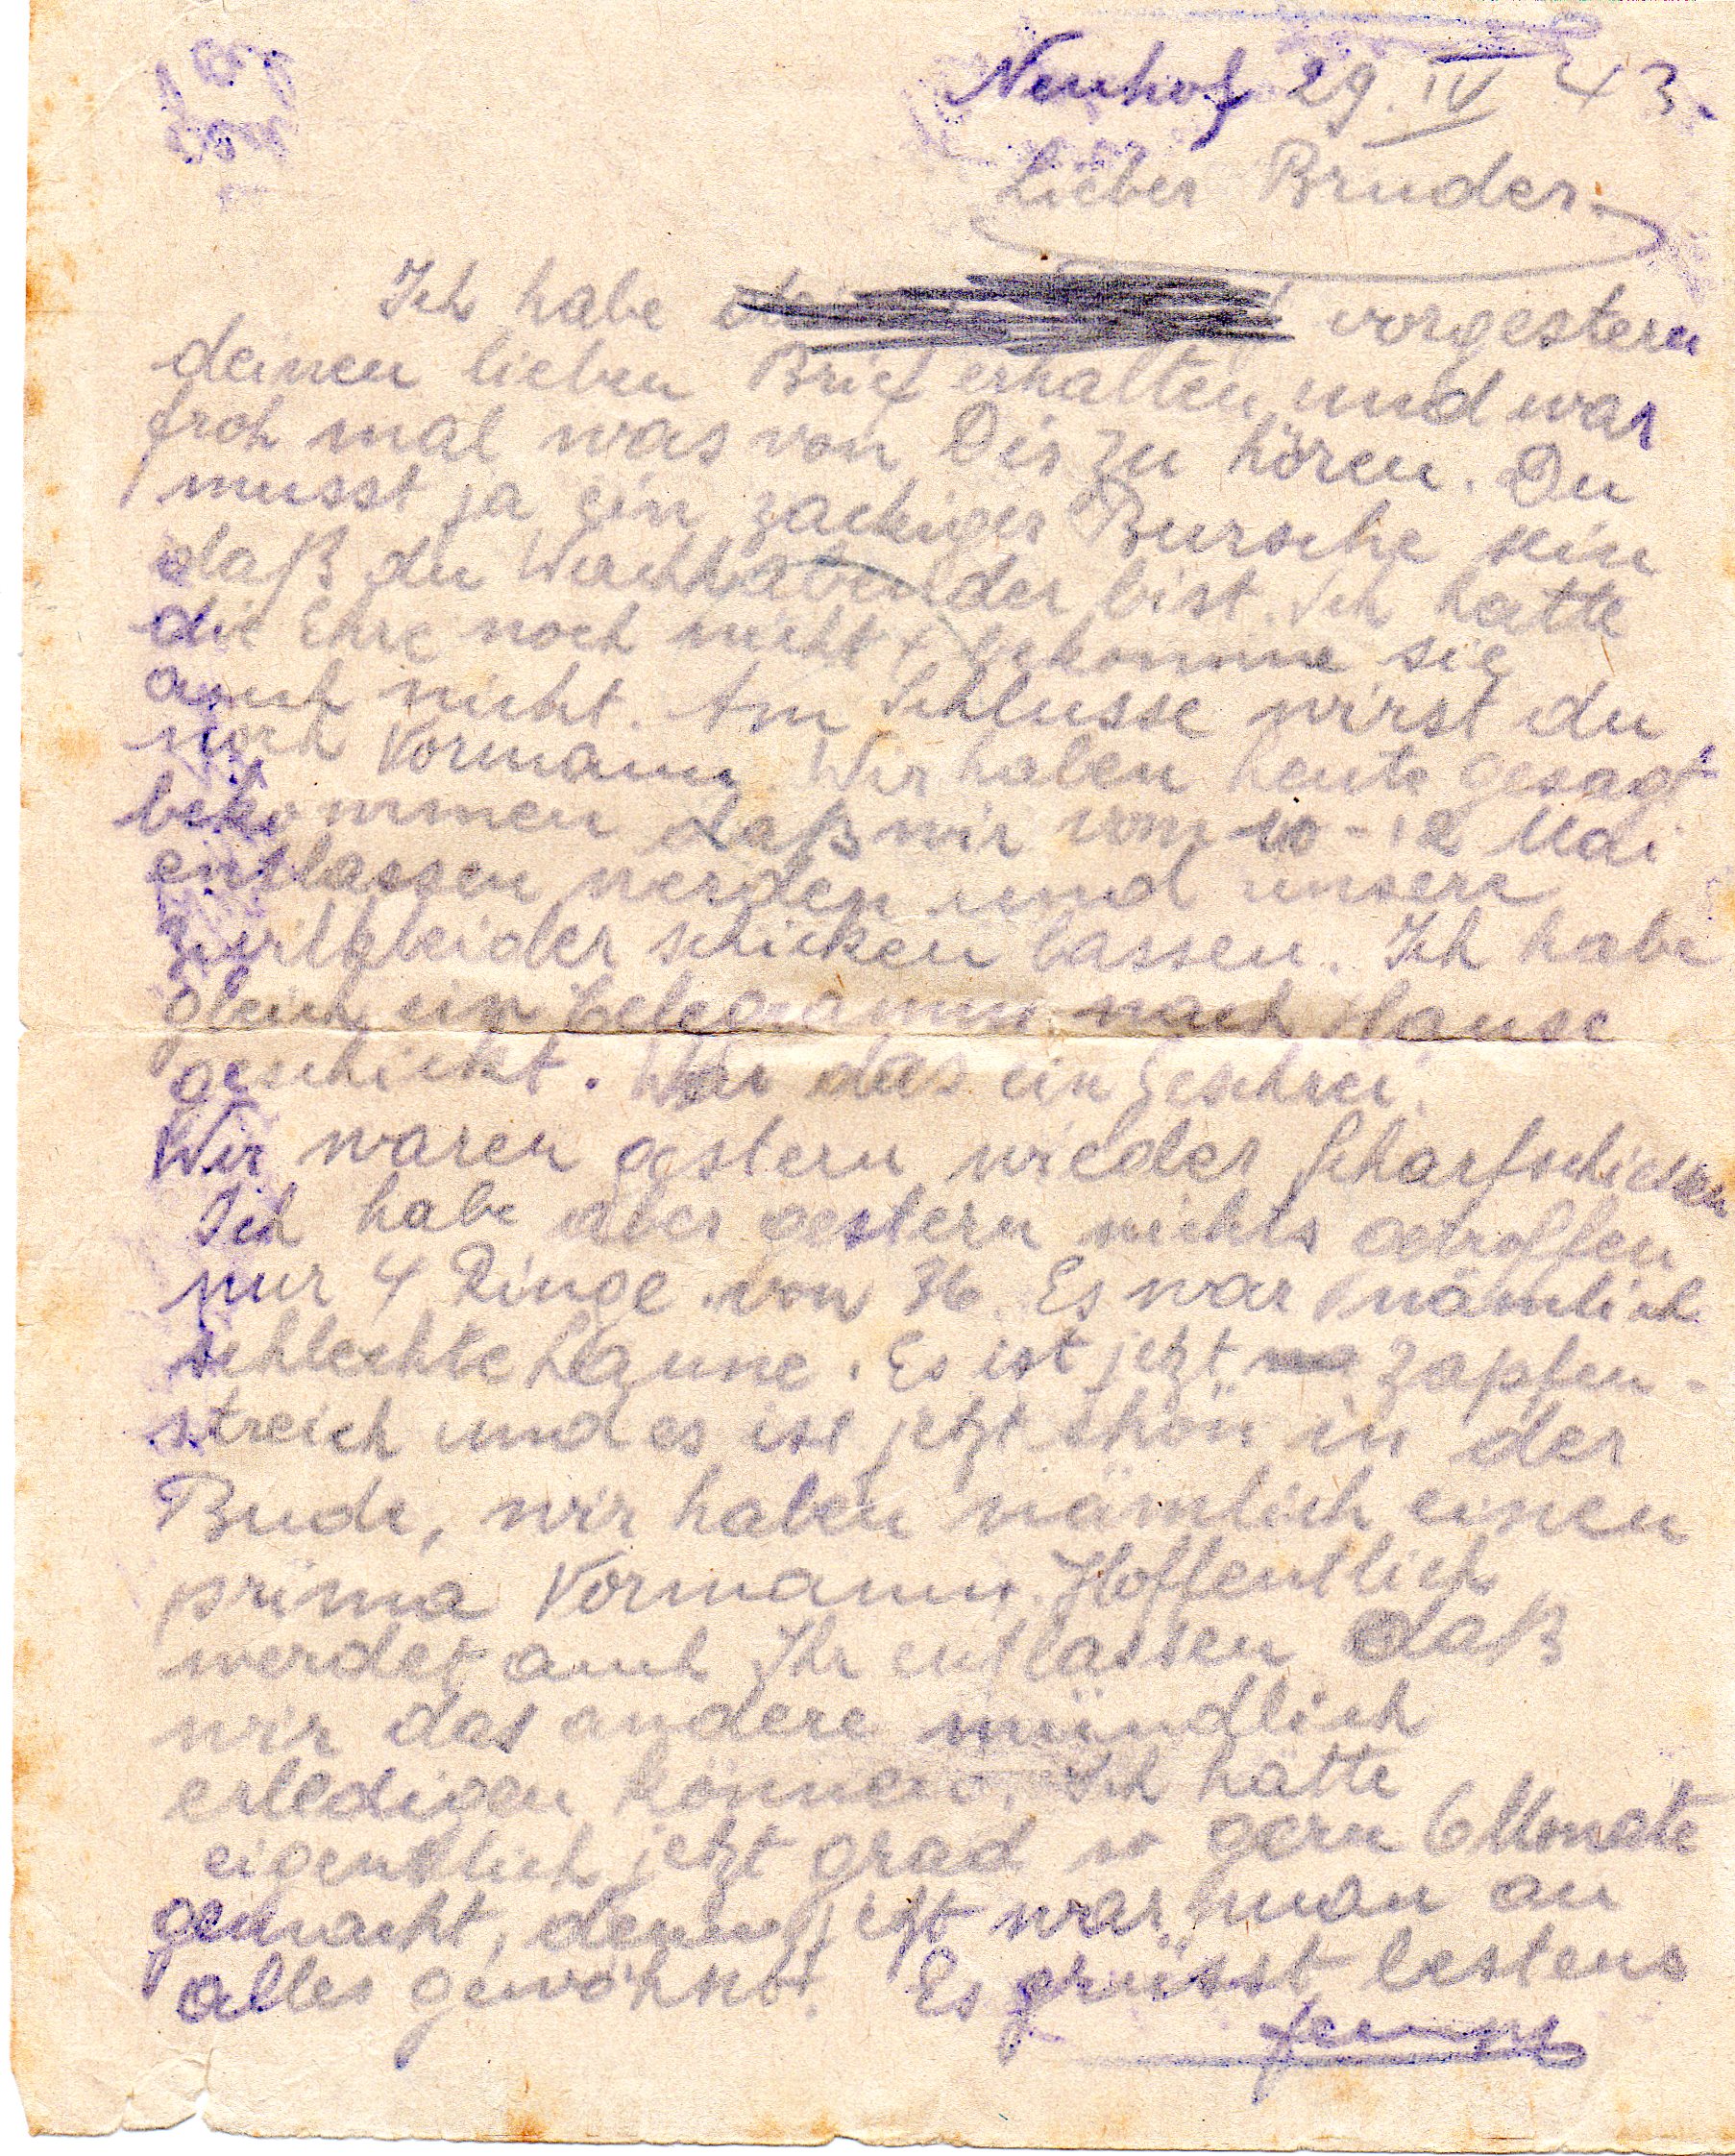 Neuhof 29. IV 43.
Lieber Bruder.
Ich habe vorgestern
deinen lieben Brief erhalten und war
froh mal was von Dir zu hören. Du
musst ja ein zackiger Bursche sein
daß du Wachhabender bist. Ich hatte
die Ehre noch nicht bekomme sie
auch nicht. Am Schlusse wirst du
noch Vormann. Wir haben heute gesagt
bekommen daß wir vom 10-12 Mai
entlassen werden und unsere
Zivilkleider schicken lassen. Ich habe
gleich ein Telegramm nach Hause
geschickt. War das ein Geschrei.
Wir waren gestern wieder Scharfschießen
Ich habe aber gestern nichts getroffen
nur 4 Ringe von 36. Es war nämlich
schlechte Laune. Es ist jetzt Zapfen-
streich und es ist jetzt schön in der
Bude, wir haben nämlich einen
prima Vormann. Hoffentlich
werdet auch Ihr entlassen daß
wir das andere mündlich
erledigen können. Ich hätte
eigentlich jetzt grad so gern 6 Monate
gemacht, denn jetzt war man an
alles gewöhnt. Es grüsst bestens